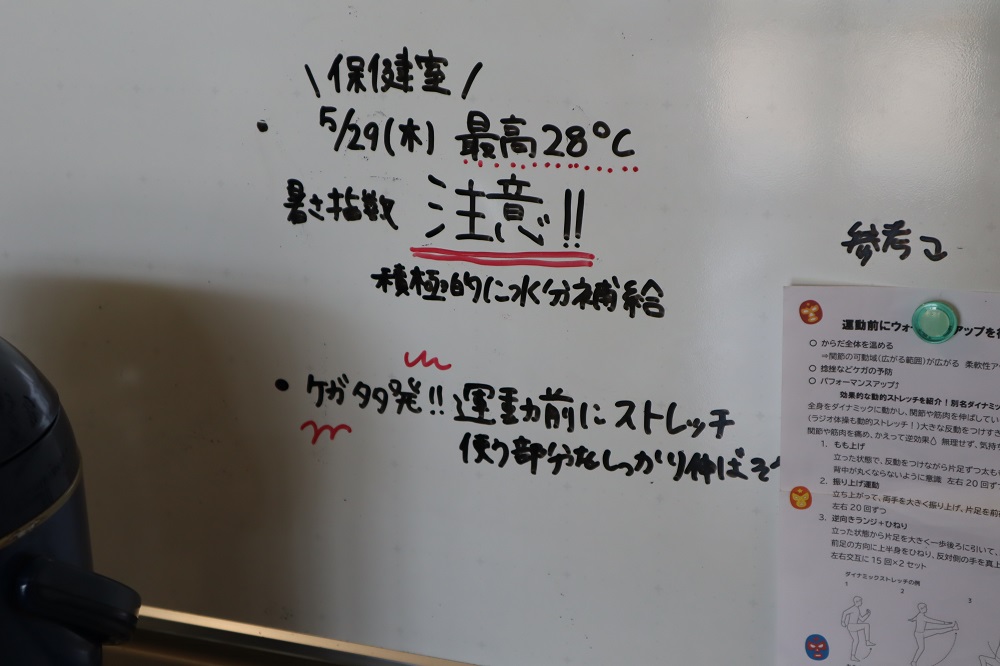 \ 保健室 /
・ 5/29(木) 最高28°C
暑さ指数 注意!!
積極的に水分補給
・ ケガ多発!! 運動前にストレッチ
使う部分をしっかり伸ばそう
参考
運動前にウォ アップを
○ からだ全体を温める
⇒関節の可動域(広がる範囲)が広がる 柔軟性ア
○ 捻挫などケガの予防
○ パフォーマンスアップ↑
効果的な動的ストレッチを紹介!別名ダイナミッ
全身をダイナミックに動かし、関節や筋肉を伸ばしてい
(ラジオ体操も動的ストレッチ!)大きな反動をつけすぎ
関節や筋肉を痛め、かえって逆効果 無理せず、気持ち
1. もも上げ
立った状態で、反動をつけながら片足ずつ太もも
背中が丸くならないように意識 左右20回ず
2. 振り上げ運動
立ち上がって、両手を大きく振り上げ、片足を前
左右20回ずつ
3. 逆向きランジ+ひねり
立った状態から片足を大きく一歩後ろに引いて、
前足の方向に上半身をひねり、反対側の手を真上
左右交互に15回×2セット
ダイナミックストレッチの例
1 2 3